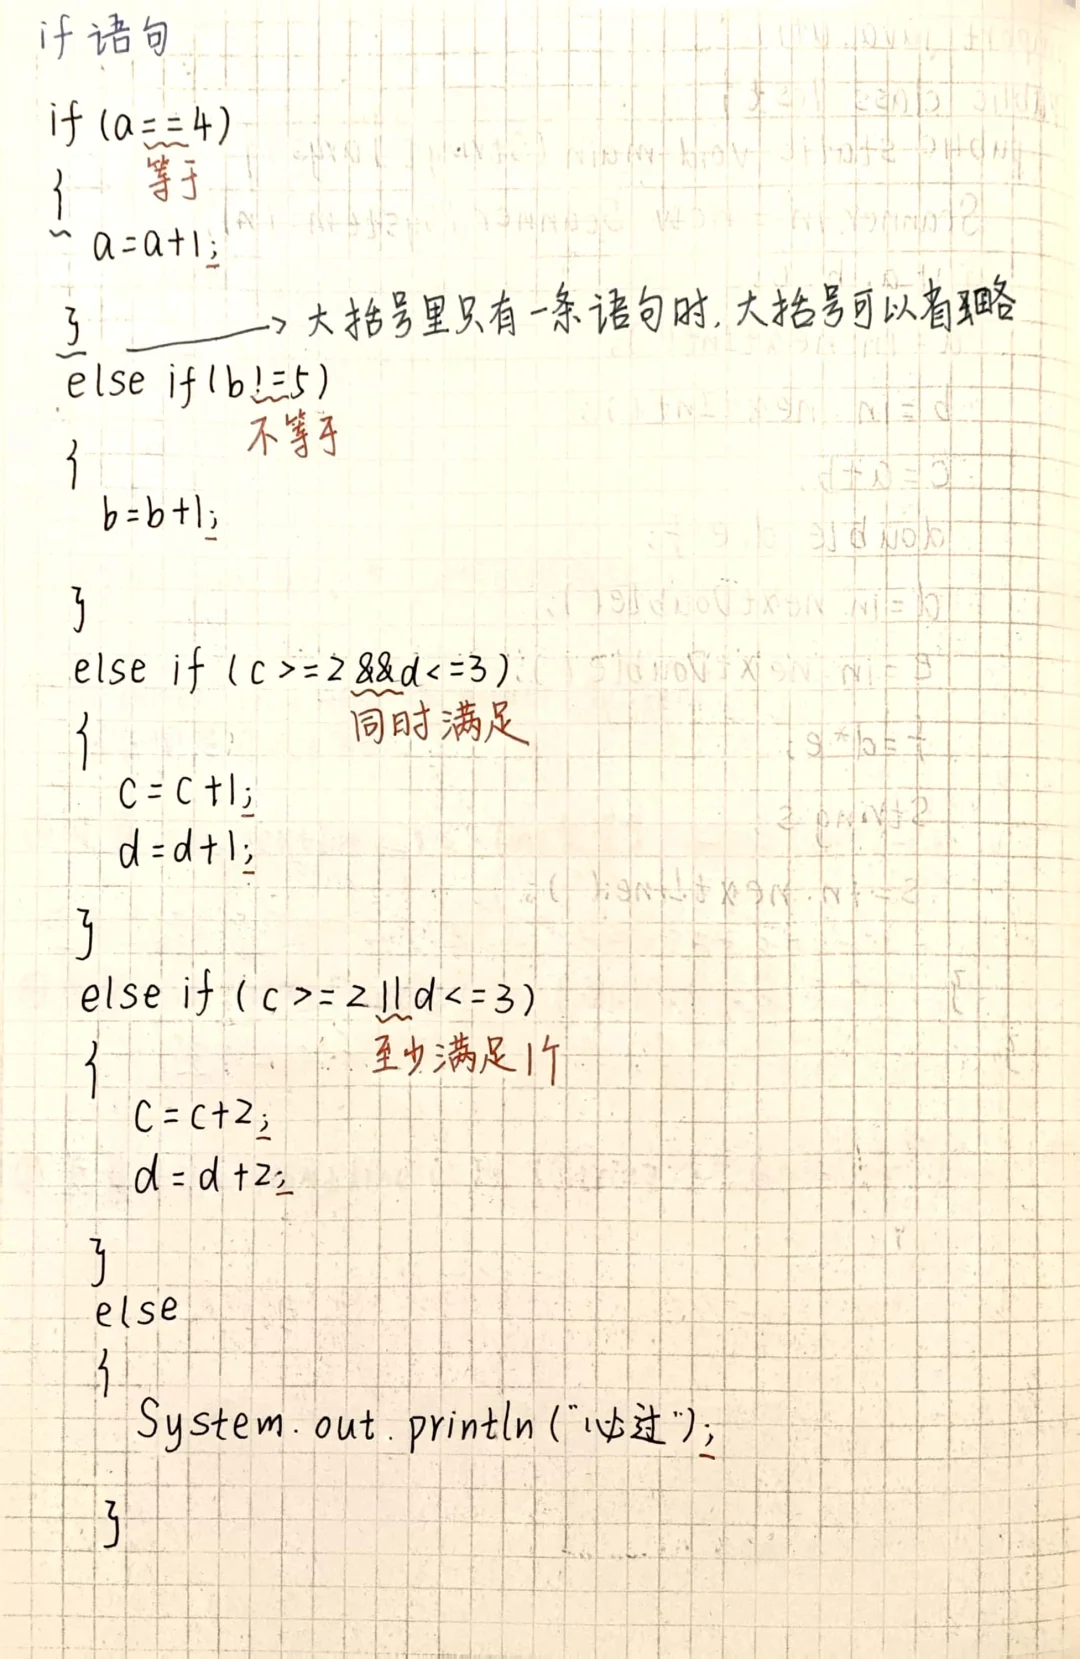 if 语句
if (a==4)
等于
{
a=a+1;
} → 大括号里只有一条语句时, 大括号可以省略
else if(b!=5)
不等于
{
b=b+1;
}
else if (c>=2&&d<=3)
同时满足
{
c=c+1;
d=d+1;
}
else if (c>=2||d<=3)
至少满足1个
{
c=c+2;
d=d+2;
}
else
{
System.out.println("必过");
}